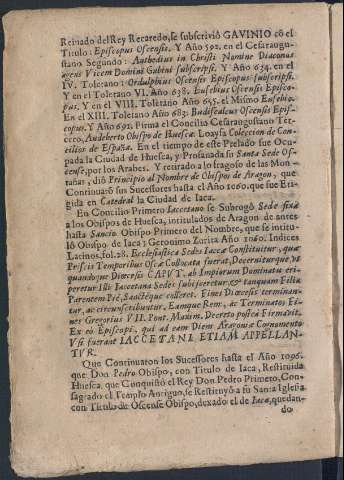 Reinado del Rey Recaredo, se subscrivió GAVINIO cō el
Titulo: Episcopus Oscensis. Y Año 592. en el Cesaraugus-
tano Segundo: Anthedius in Christi Nomine Diaconus
agens Vicem Domini Gabini subscripsi. Y Año 634. en el
IV. Toletano: Ordulphus Oscensis Episcopus subscripsi.
Y en el Toletano VI. Año 638. Eusebius Oscensis Episco-
pus. Y en el VIII. Toletano Año 645. el Mismo Eusebio.
En el XIII. Toletano Año 683. Budisealcus Oscensis Epis-
copus. Y Año 692. Firma el Concilio Cesaraugustano Ter-
cero, Audeberto Obispo de Huesca. Loaysa Coleccion de Con-
cilios de España. En el tiempo de este Prelado fue Ocu-
pada la Ciudad de Huesca, y Profanada su Santa Sede Os-
cense, por los Arabes. Y retirado a lo fragoso de las Mon-
tañas, dió Principio al Nombre de Obispo de Aragon, que
Continuarō sus Sucessores hasta el Año 1060. que fue Eri-
gida en Catedral la Ciudad de Iaca.
En Concilio Primero Iaccetano se Subrogò Sede fixa
a los Obispos de Huesca, intitulados de Aragon de antes
hasta Sancio Obispo Primero del Nombre, que se intitu-
lò Obispo de Iaca; Geronimo Zurita Año 1060. Indices
Latinos, fol. 28. Ecclesiastica Sedes Iaccæ Constituitur, quæ
Priscis Temporibus Oscæ Collocata fuerat, Decerniturque, vt
quandoque Diocesis CAPVT. ab Impiorum Dominatu eri-
peretur Illi Iaccetana Sedes subijceretur, & tanquam Filia
Parentem Piè, Sanctèque colleret. Fines Diocesis terminan-
tur, ac circunscribuntur. Eamque Rem, ac Terminatos Fi-
nes Gregorius VII. Pont. Maxim. Decreto postea Firmavit.
Ex eo Episcopi, qui ad eam Diem Aragoniæ Cognomento
Vsi fuerant IACCETANI ETIAM APPELLAN-
TVR.
Que Continuaron los Sucessores hasta el Año 1096.
que Don Pedro Obispo, con Titulo de Iaca, Restituida
Huesca, que Conquistó el Rey Don Pedro Primero, Con-
sagrado el Templo Antiguo, se Restituyò a su Santa Iglesia
con Titulo de Oscense Obispo, dexado el de Iaca, quedan-
do